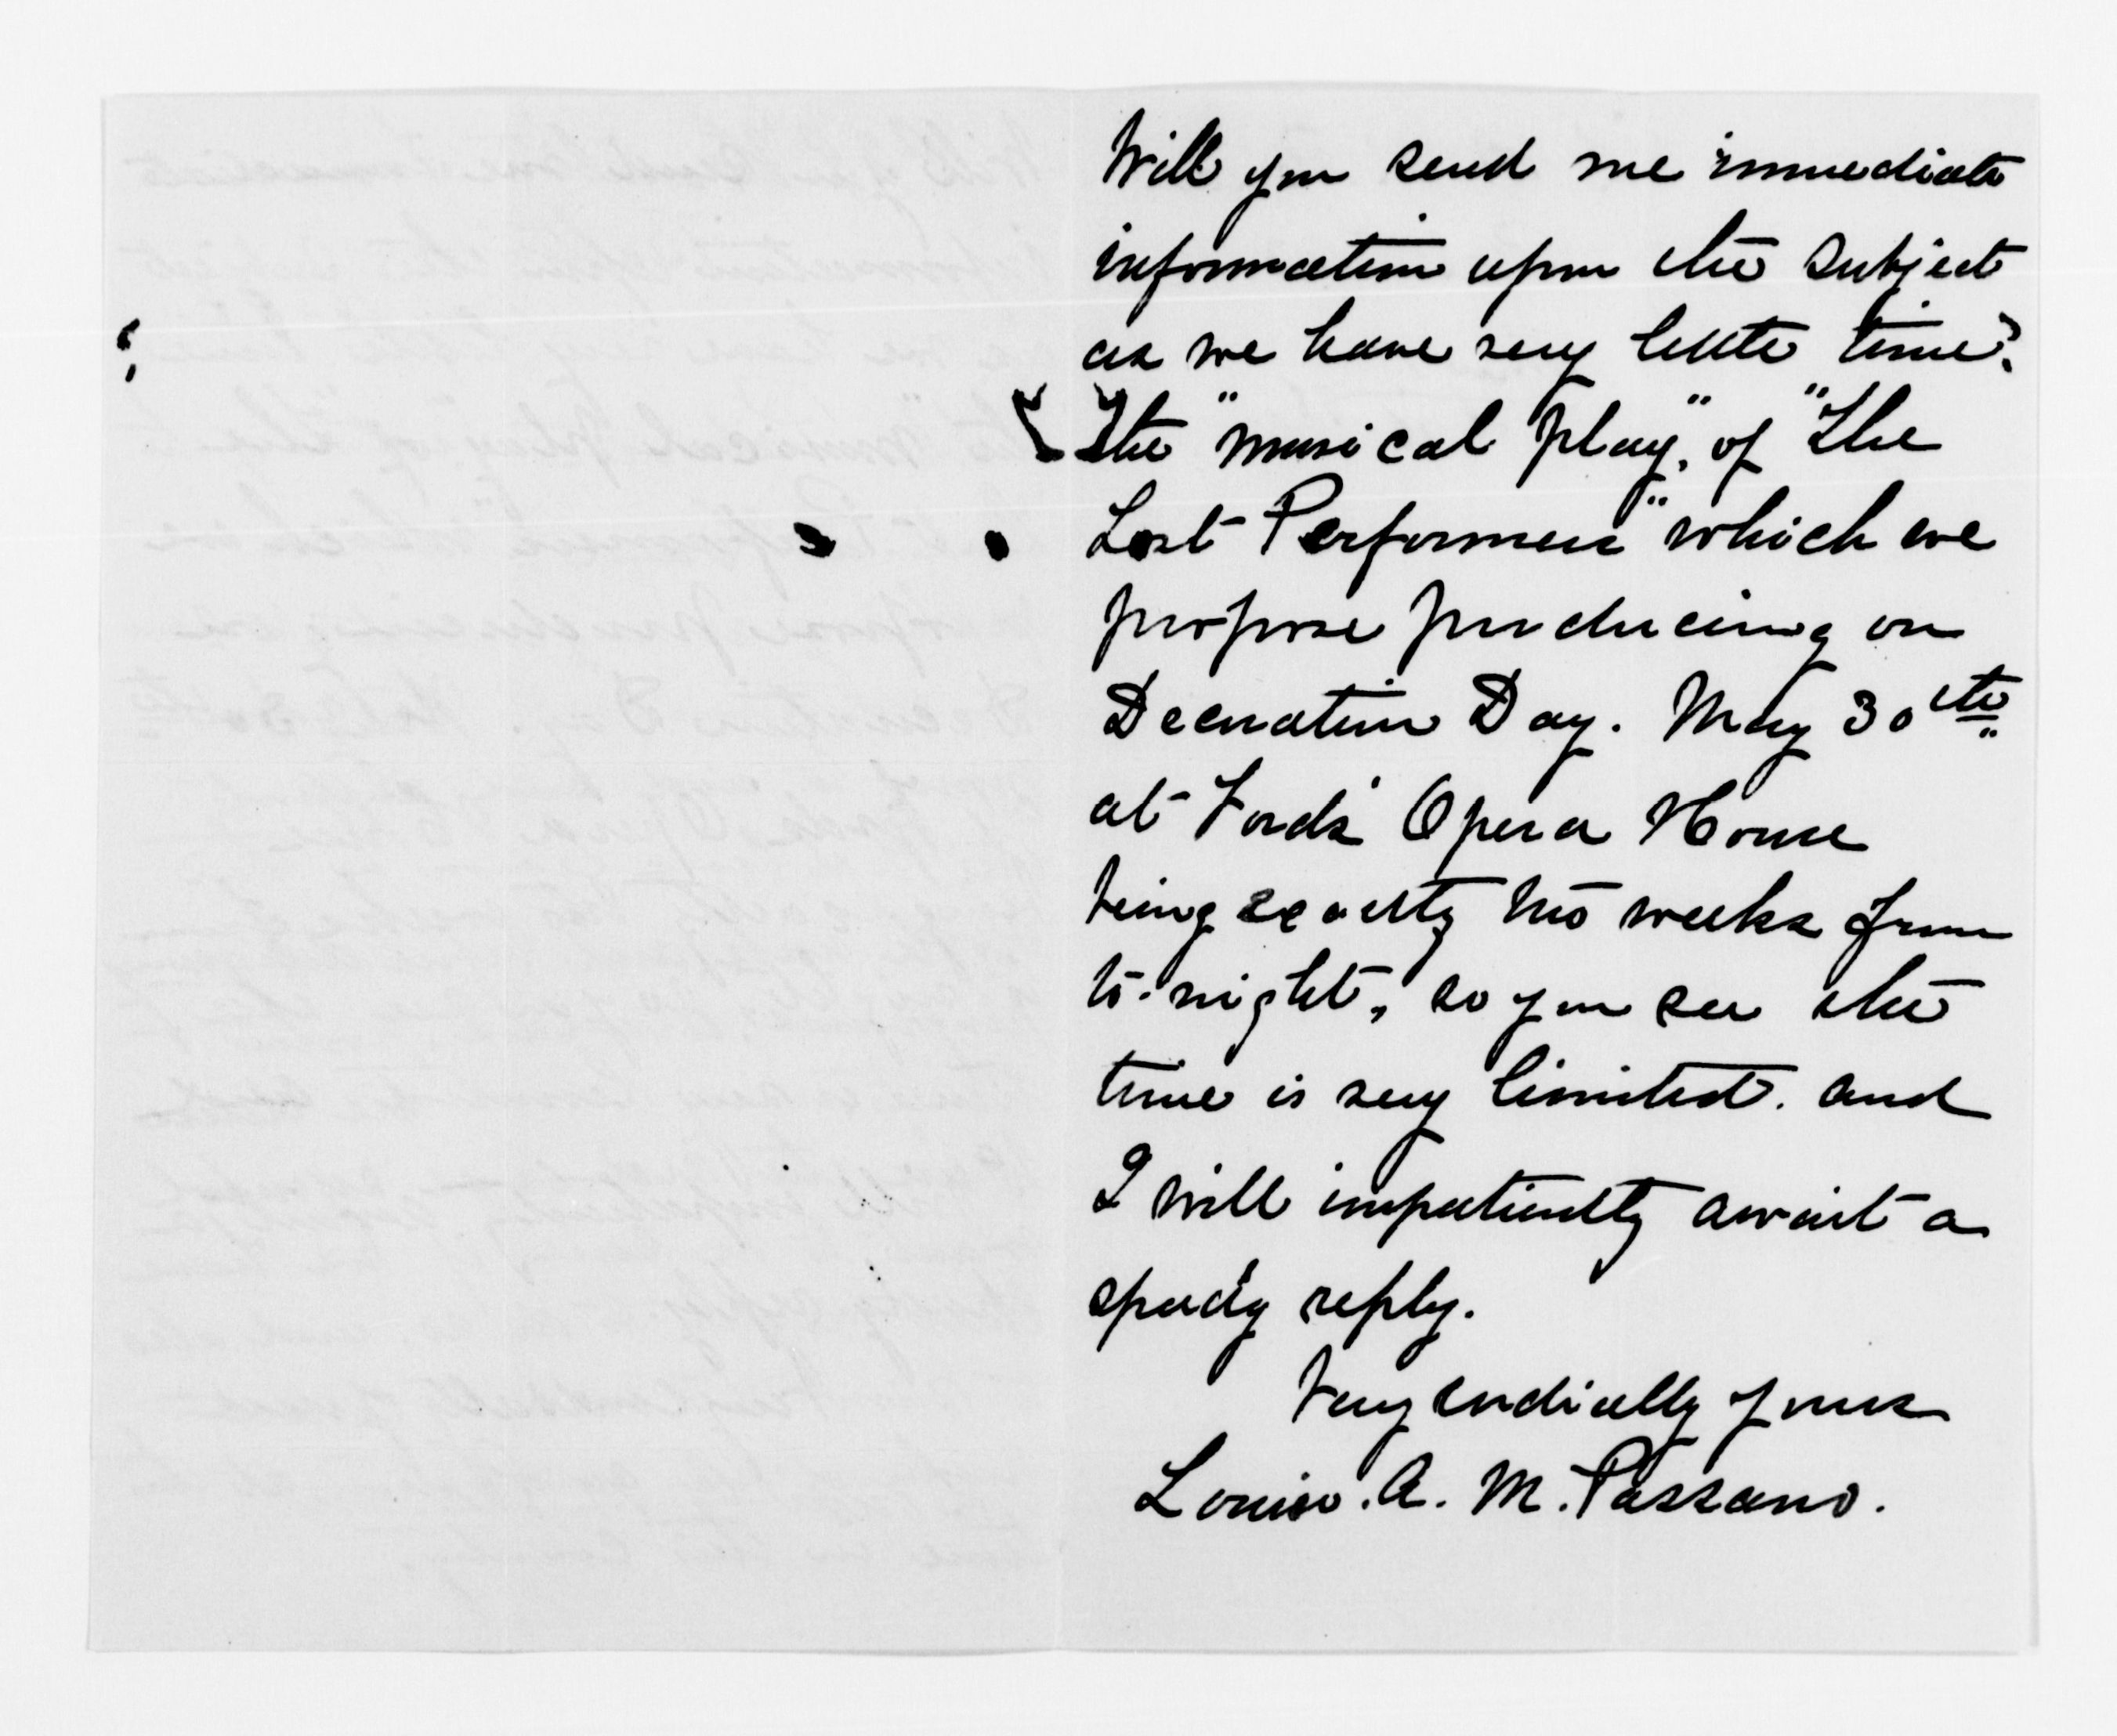 Will you send me immediate
information upon the subject
as we have very little time?
The "musical play", of "The
Lost Performers" which we
propose producing on
Decoration Day. May 30th
at Fords' Opera House
being exactly two weeks from
to-night, so you see the
time is very limited. and
I will impatiently await a
speedy reply.
Very cordially yours
Louise. A. M. Passano.